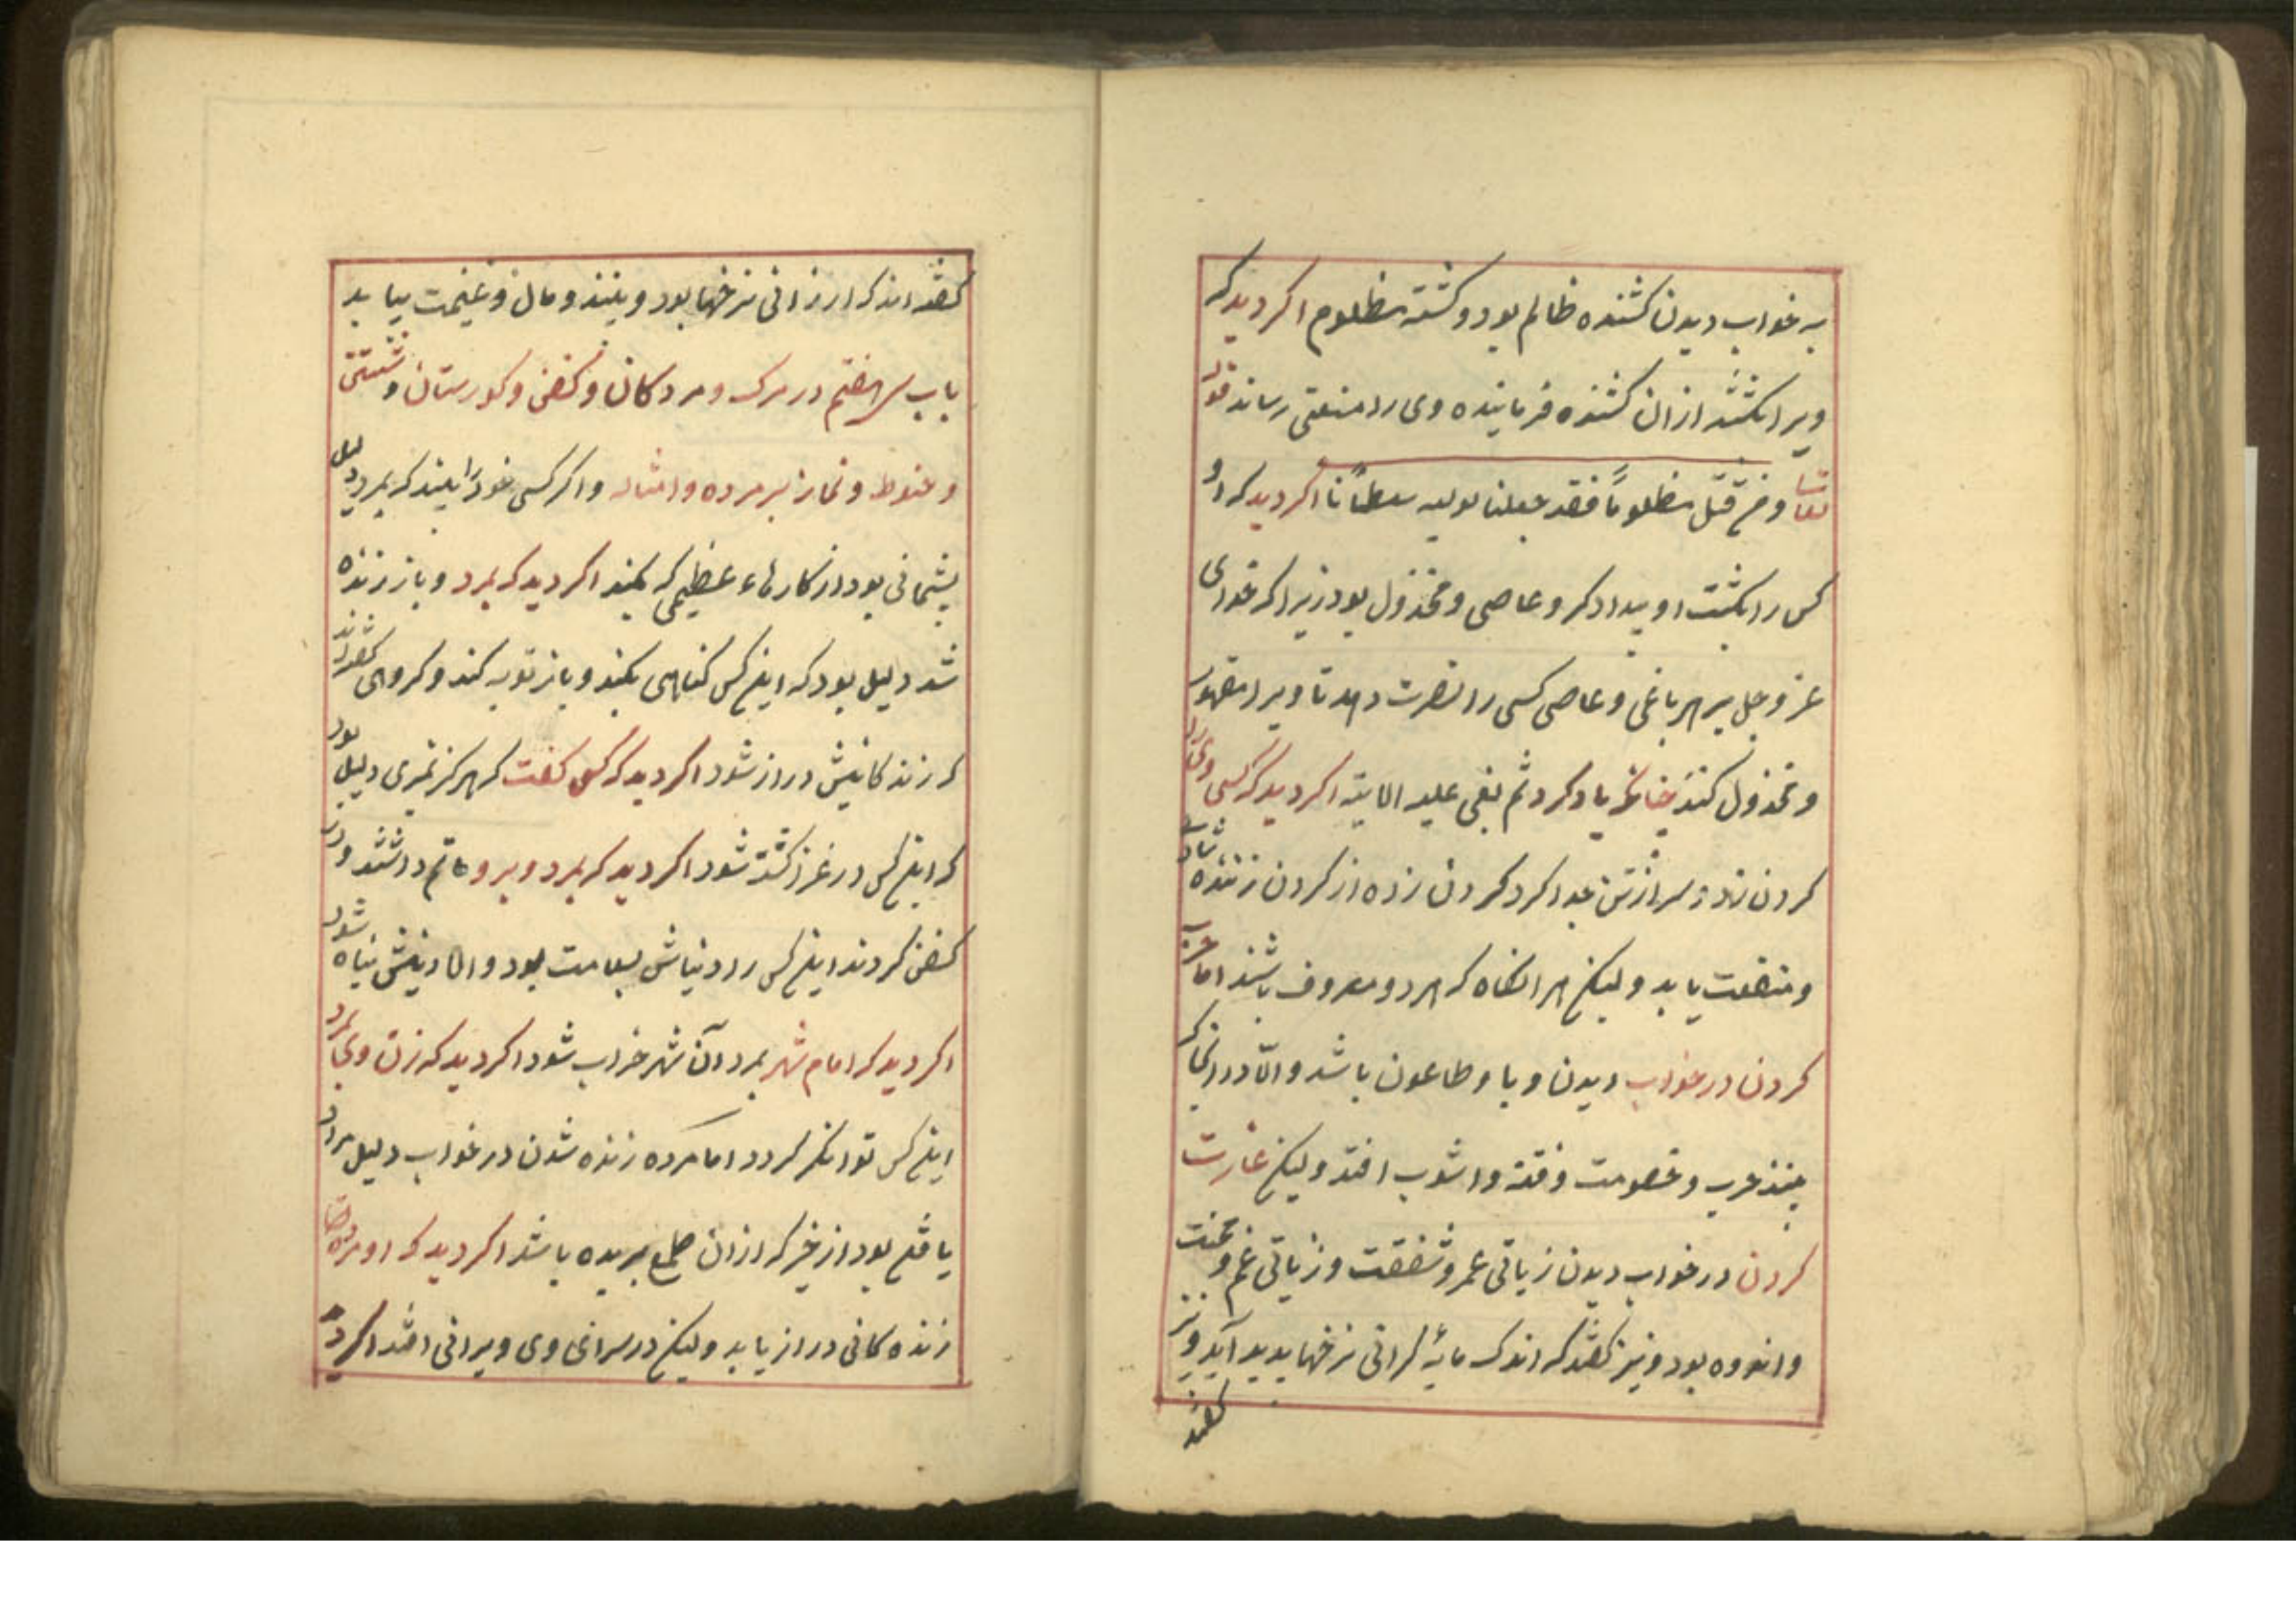 به خواب دیدن کشنده ظالم بود و کشته مظلوم اکر دید که
ویرا بکشتند ازان کشنده فرمانیده وی را منفعتی رساند قوله
تعالی و من قتل مظلوماً فقد جعلنا لولیه سلطاناً اکر دید که او
کس را بکشت او بیدادکر و عاصی و مخذول بود زیرا که خدای
عز و جل بر هر باغی و عاصی کسی را نصرت دهد تا ویرا مقهور
و مخذول کند چنانکه یاد کرد ثم بغی علیه الایة اکر دید که کسی ویرا
کردن زد و سر از تن جدا کرد کردن زده از کردن زننده
و منفعت یابد ولیکن هر انکاه که هر دو معروف باشند اما حرب
کردن در خواب دیدن وبا و طاعون باشد و الا در انجا که
بینند حرب و خصومت و فتنه و اشوب افتد ولیکن غارت
کردن در خواب دیدن زیاتی عمر و شفقت و زیاتی غم و محنت
و اندوه بود و نیز کفتند که اندک مایهٔ کرانی نرخها پدید آید و نیز
کفته
کفته اند که ارزانی نرخها بود و بینند و مال و غنیمت بیابد
باب سی هفتم در مرک و مردکان و کفن و کورستان و شستن
و حنوط و نماز بر مرده و امثاله و اکر کسی خود را بیند که بمرد دلیل
پشیمانی بود از کارهاء عظیمی که بکند اکر دید که بمرد و باز زنده
شد دلیل بود که این کس کناهی بکند و باز توبه کند و کروهی کفته اند
که زندکانیش دراز شود اکر دید که کسی کفت که هرکز نمیری دلیل بود
که این کس در غزا کشته شود اکر دید که بمرد و برو ماتم داشتند و در
کفن کردند این کس را دنیاش بسلامت بود و اما دینش تباه شود
اکر دید که امام شهر بمرد آن شهر خراب شود اکر دید که زن وی بمرد
این کس توانکر کردد اما مرده زنده شدن در خواب دلیل مراد
یافتن بود از خیر که ازان طمع بریده باشد اکر دید که او مرده
زنده کانی دراز یابد ولیکن در سرای وی ویرانی افتد اکر دید